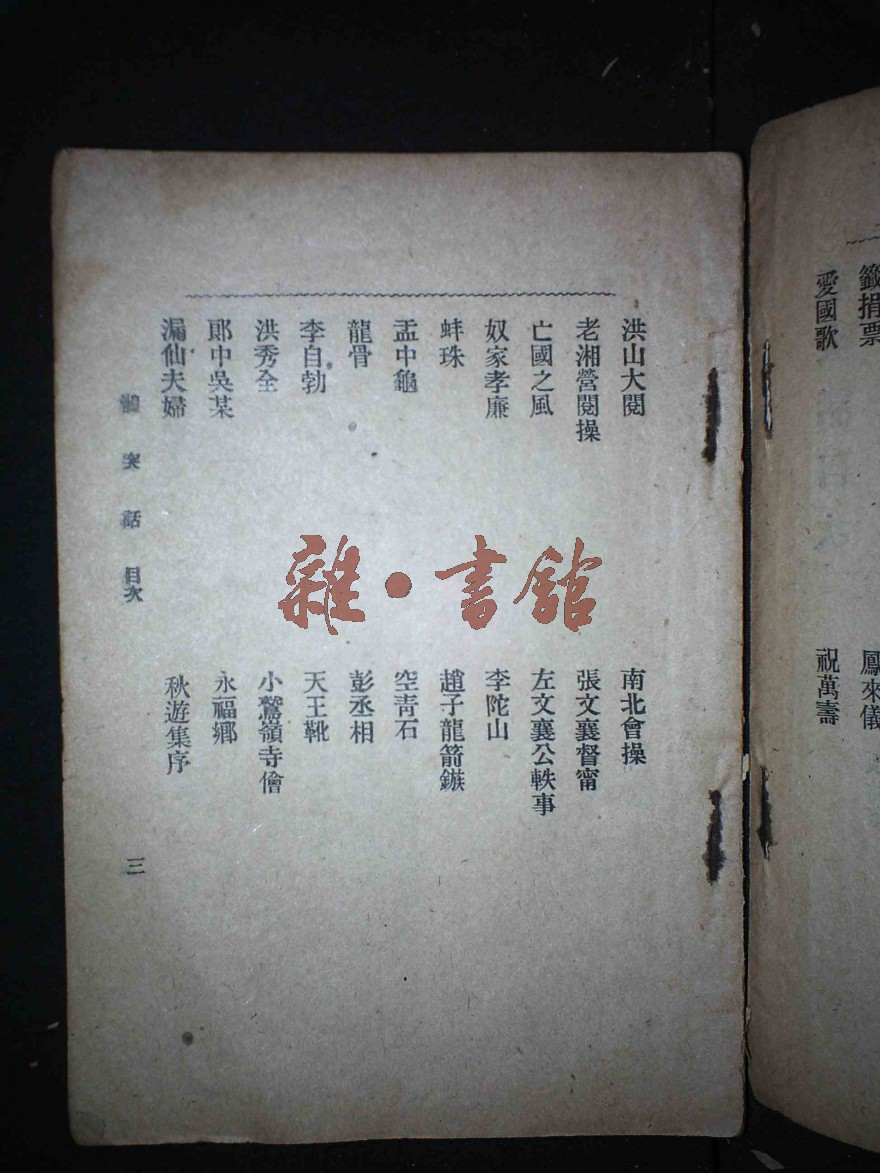 籤捐票
鳳來儀
愛國歌
祝萬壽
洪山大閱
南北會操
老湘營閱操
張文襄督甯
亡國之風
左文襄公軼事
奴家孝廉
李陀山
蚌珠
趙子龍箭鏃
盂中龜
空青石
龍骨
彭丞相
李自勃
天王靴
洪秀全
小鷲嶺寺僧
郎中吳某
永福鄉
漏仙夫婦
秋遊集序
突話 目次
三
雜·書館